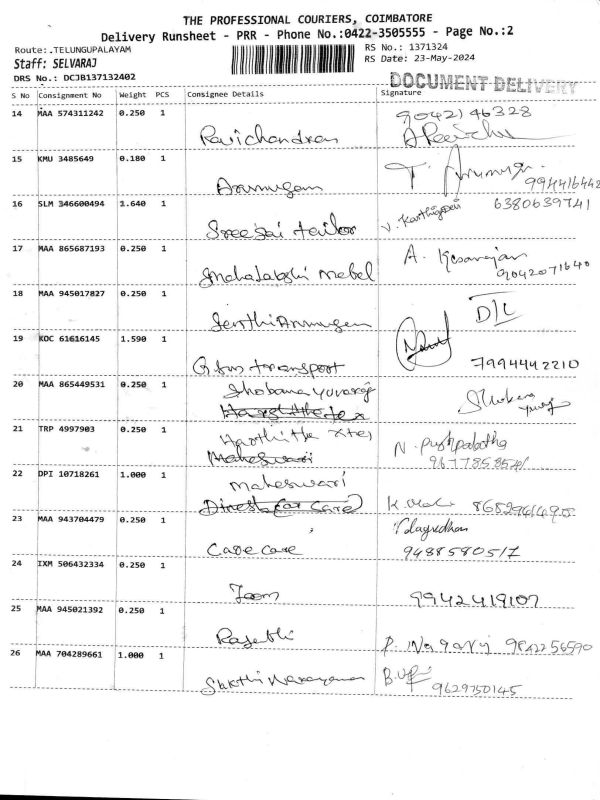 THE PROFESSIONAL COURIERS, COIMBATORE
Delivery Runsheet - PRR - Phone No.:0422-3505555 - Page No.:2
Route:.TELUNGUPALAYAM
RS No.: 1371324
Staff: SELVARAJ
RS Date: 23-May-2024
DRS No.: DCJB137132402
DOCUMENT DELIVERY
S No Consignment No Weight PCS Consignee Details Signature
14 MAA 574311242 0.250 1
Ravichandran
15 KMU 3485649 0.180 1
Arumugam T. Arumug
16 SLM 346600494 1.640 1 6380639741
Sreejai tailor
17 MAA 865687193 0.250 1 A. Kesavarajan
Mahalakshi metal 9042071640
18 MAA 945017827 0.250 1 D/L
SenthiArumugam
19 KOC 61616145 1.590 1
transport 7994442210
20 MAA 865449531 0.250 1
Shobana yuvaraj Shobana yuvaraj
21 TRP 4997903 0.250 1
N. Pushpalatha
Maheswari
22 DPI 10718261 1.000 1
Maheswari
Direct Car Care
23 MAA 943704479 0.250 1
Care care 9488580517
24 IXM 506432334 0.250 1
Zoom 9942419107
25 MAA 945021392 0.250 1
Rajathi P. Nagaraj 9842256590
26 MAA 704289661 1.000 1
Sakthi Narayanan 9629750145